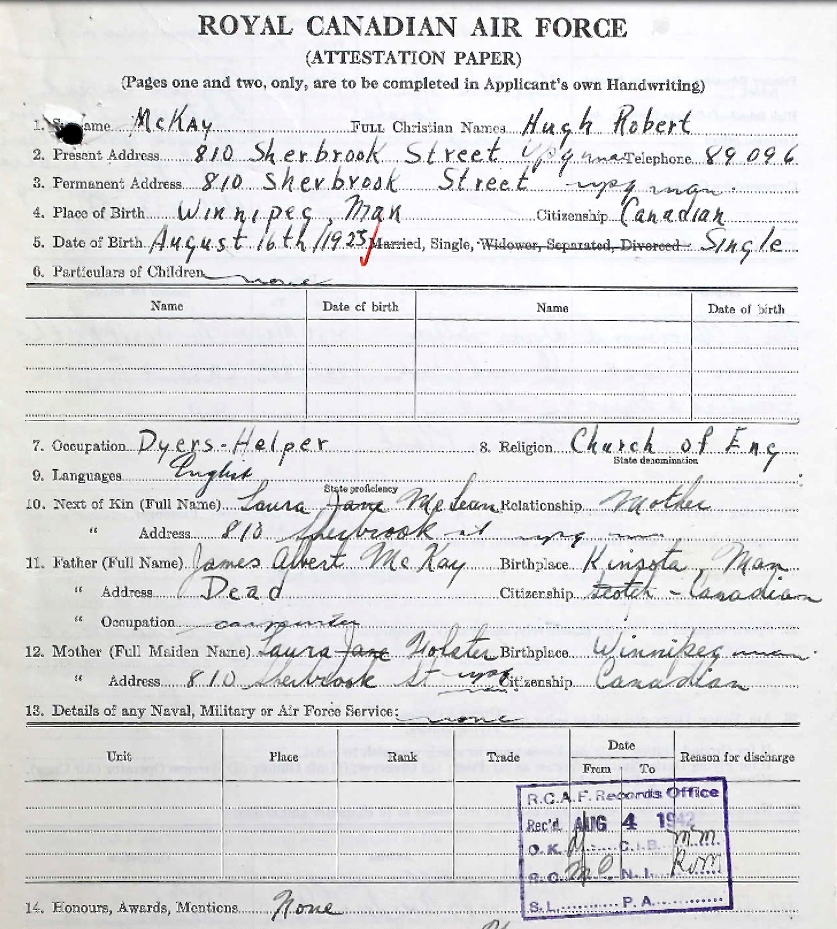 ROYAL CANADIAN AIR FORCE
(ATTESTATION PAPER)
(Pages one and two, only, are to be completed in Applicant's own Handwriting)
1. Surname McKay FULL Christian Names Hugh Robert
2. Present Address 810 Sherbrook Street wpg man Telephone 89 096
3. Permanent Address 810 Sherbrook Street wpg man.
4. Place of Birth Winnipeg, Man Citizenship Canadian
5. Date of Birth August 16th/1923 Married, Single, Widower, Separated, Divorced Single
6. Particulars of Children none
Name Date of birth Name Date of birth
7. Occupation Dyers-Helper 8. Religion Church of Eng
State denomination
9. Languages English
State proficiency
10. Next of Kin (Full Name) Laura Jane McLean Relationship Mother
" Address 810 Sherbrook st wpg man
11. Father (Full Name) James Albert McKay Birthplace Kinsota, Man
" Address Dead Citizenship Scotch - Canadian
" Occupation carpenter
12. Mother (Full Maiden Name) Laura Jane Birthplace Winnipeg man.
" Address 810 Sherbrook St wpg man. Citizenship Canadian
13. Details of any Naval, Military or Air Force Service: none
Unit Place Rank Trade Date Reason for discharge
From To
R.C.A.F. Records Office
Rec'd. AUG 4 1942
O.K. C.I.B. M.M.
R.O. N.I. RM
S.L. P.A.
14. Honours, Awards, Mentions None